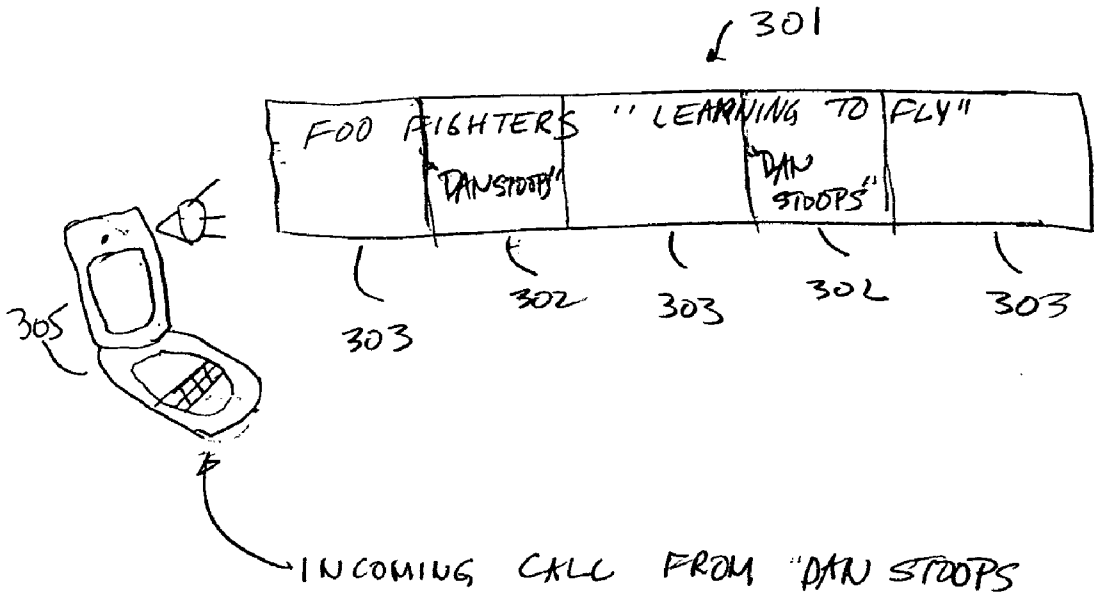 301
FOO FIGHTERS "LEARNING TO FLY"
"DAN STOOPS"
"DAN
STOOPS"
305
303
302
303
302
303
INCOMING CALL FROM "DAN STOOPS